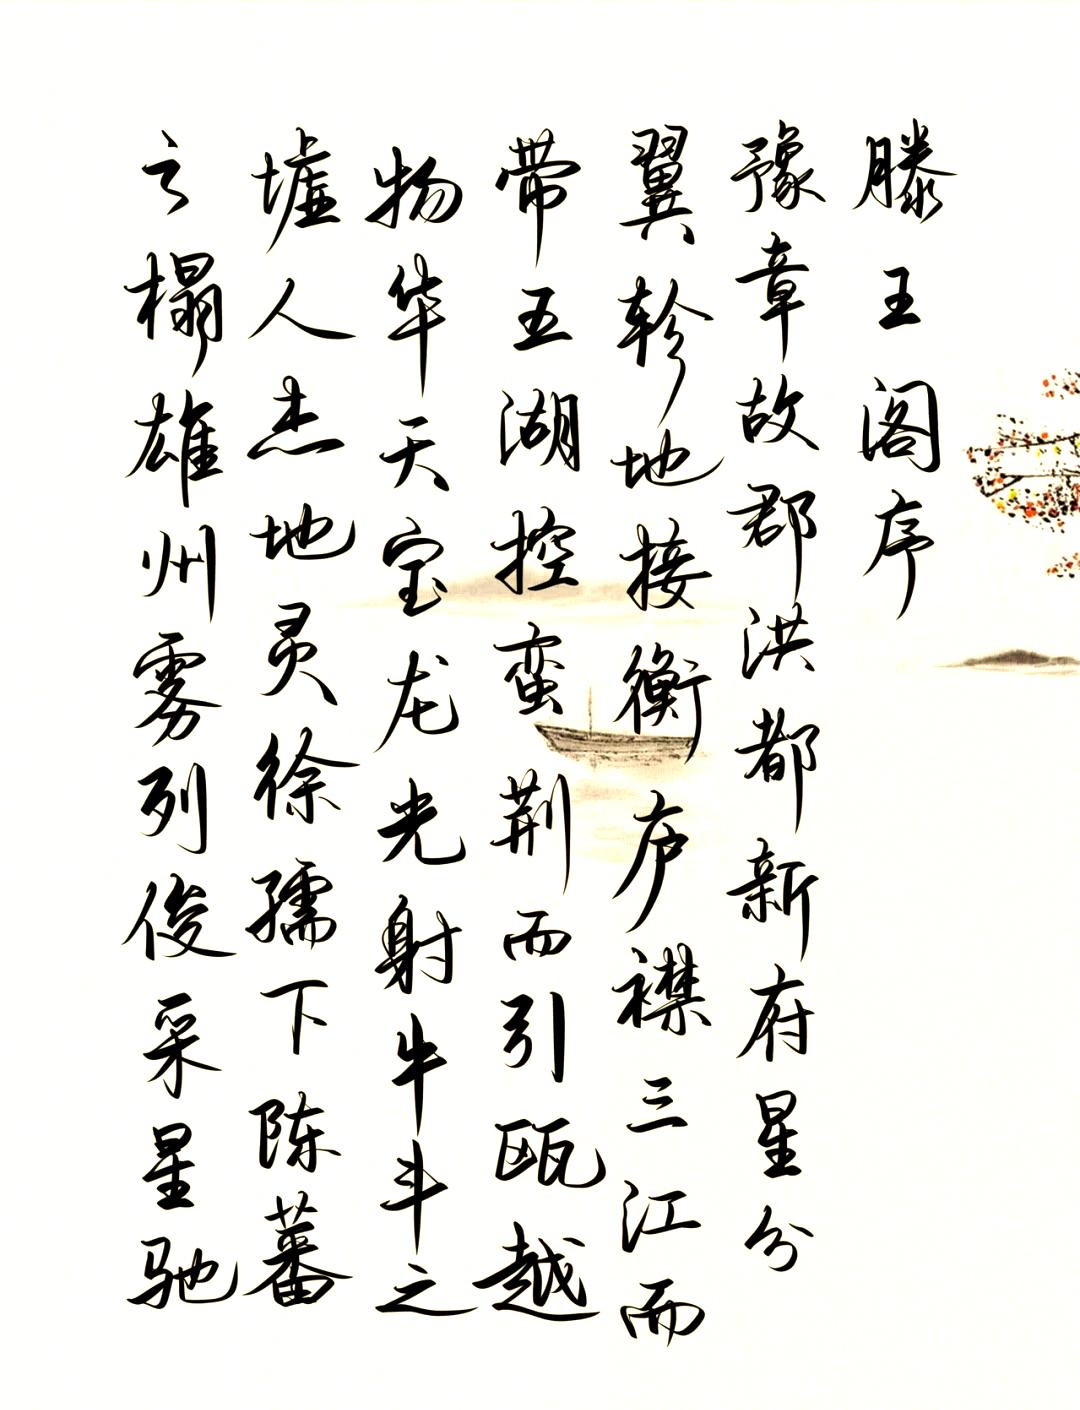 滕王阁序
豫章故郡洪都新府星分
翼轸地接衡庐襟三江而
带五湖控蛮荆而引瓯越
物华天宝龙光射牛斗之
墟人杰地灵徐孺下陈蕃
之榻雄州雾列俊采星驰